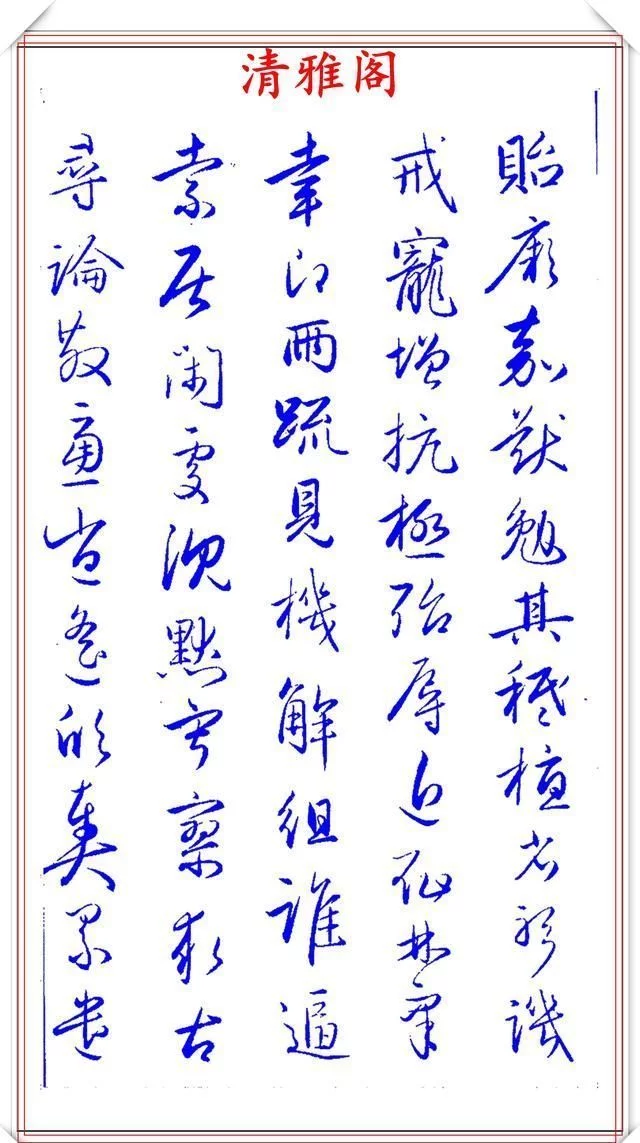 清雅阁
貽厥嘉猷勉其祗植省躬譏
戒寵增抗極殆辱近恥林皋
幸即兩疏見機解組誰逼
索居閑處沈默寂寥求古
尋論散慮逍遙欣奏累遣